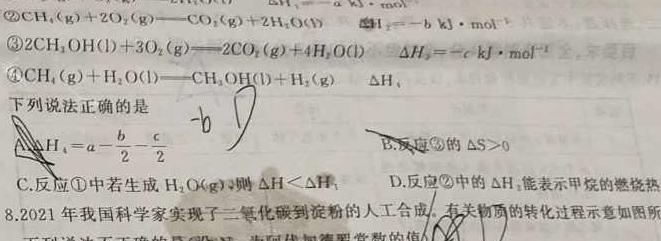 ΔH₁=-a kJ·mol⁻¹
②CH₄(g)+2O₂(g)══CO₂(g)+2H₂O(l) ΔH₂=-b kJ·mol⁻¹
③2CH₃OH(l)+3O₂(g)══2CO₂(g)+4H₂O(l) ΔH₃=-c kJ·mol⁻¹
④CH₄(g)+H₂O(l)══CH₃OH(l)+H₂(g) ΔH₄
下列说法正确的是
-b
A.ΔH₄=a-b/2-c/2 B.反应③的 ΔS>0
C.反应①中若生成 H₂O(g),则 ΔH<ΔH₁ D.反应②中的 ΔH₂能表示甲烷的燃烧热
8.2021 年我国科学家实现了二氧化碳到淀粉的人工合成。有关物质的转化过程示意如图所